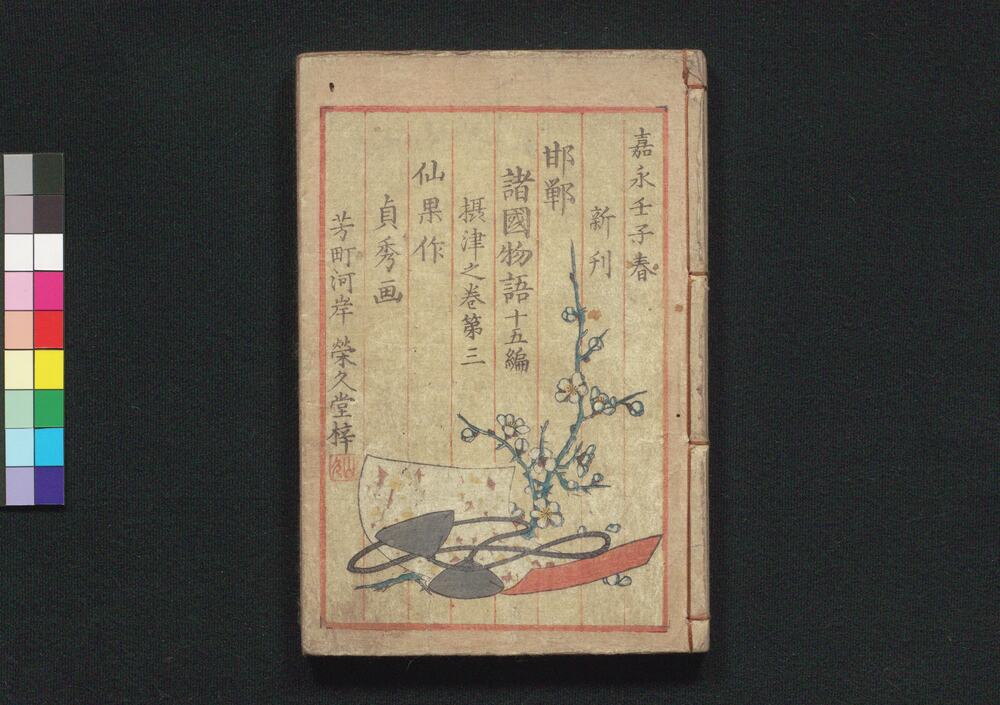 嘉永壬子春
新刊
邯鄲
諸國物語十五編
摂津之巻第三
仙果作
貞秀画
芳町河岸 榮久堂梓